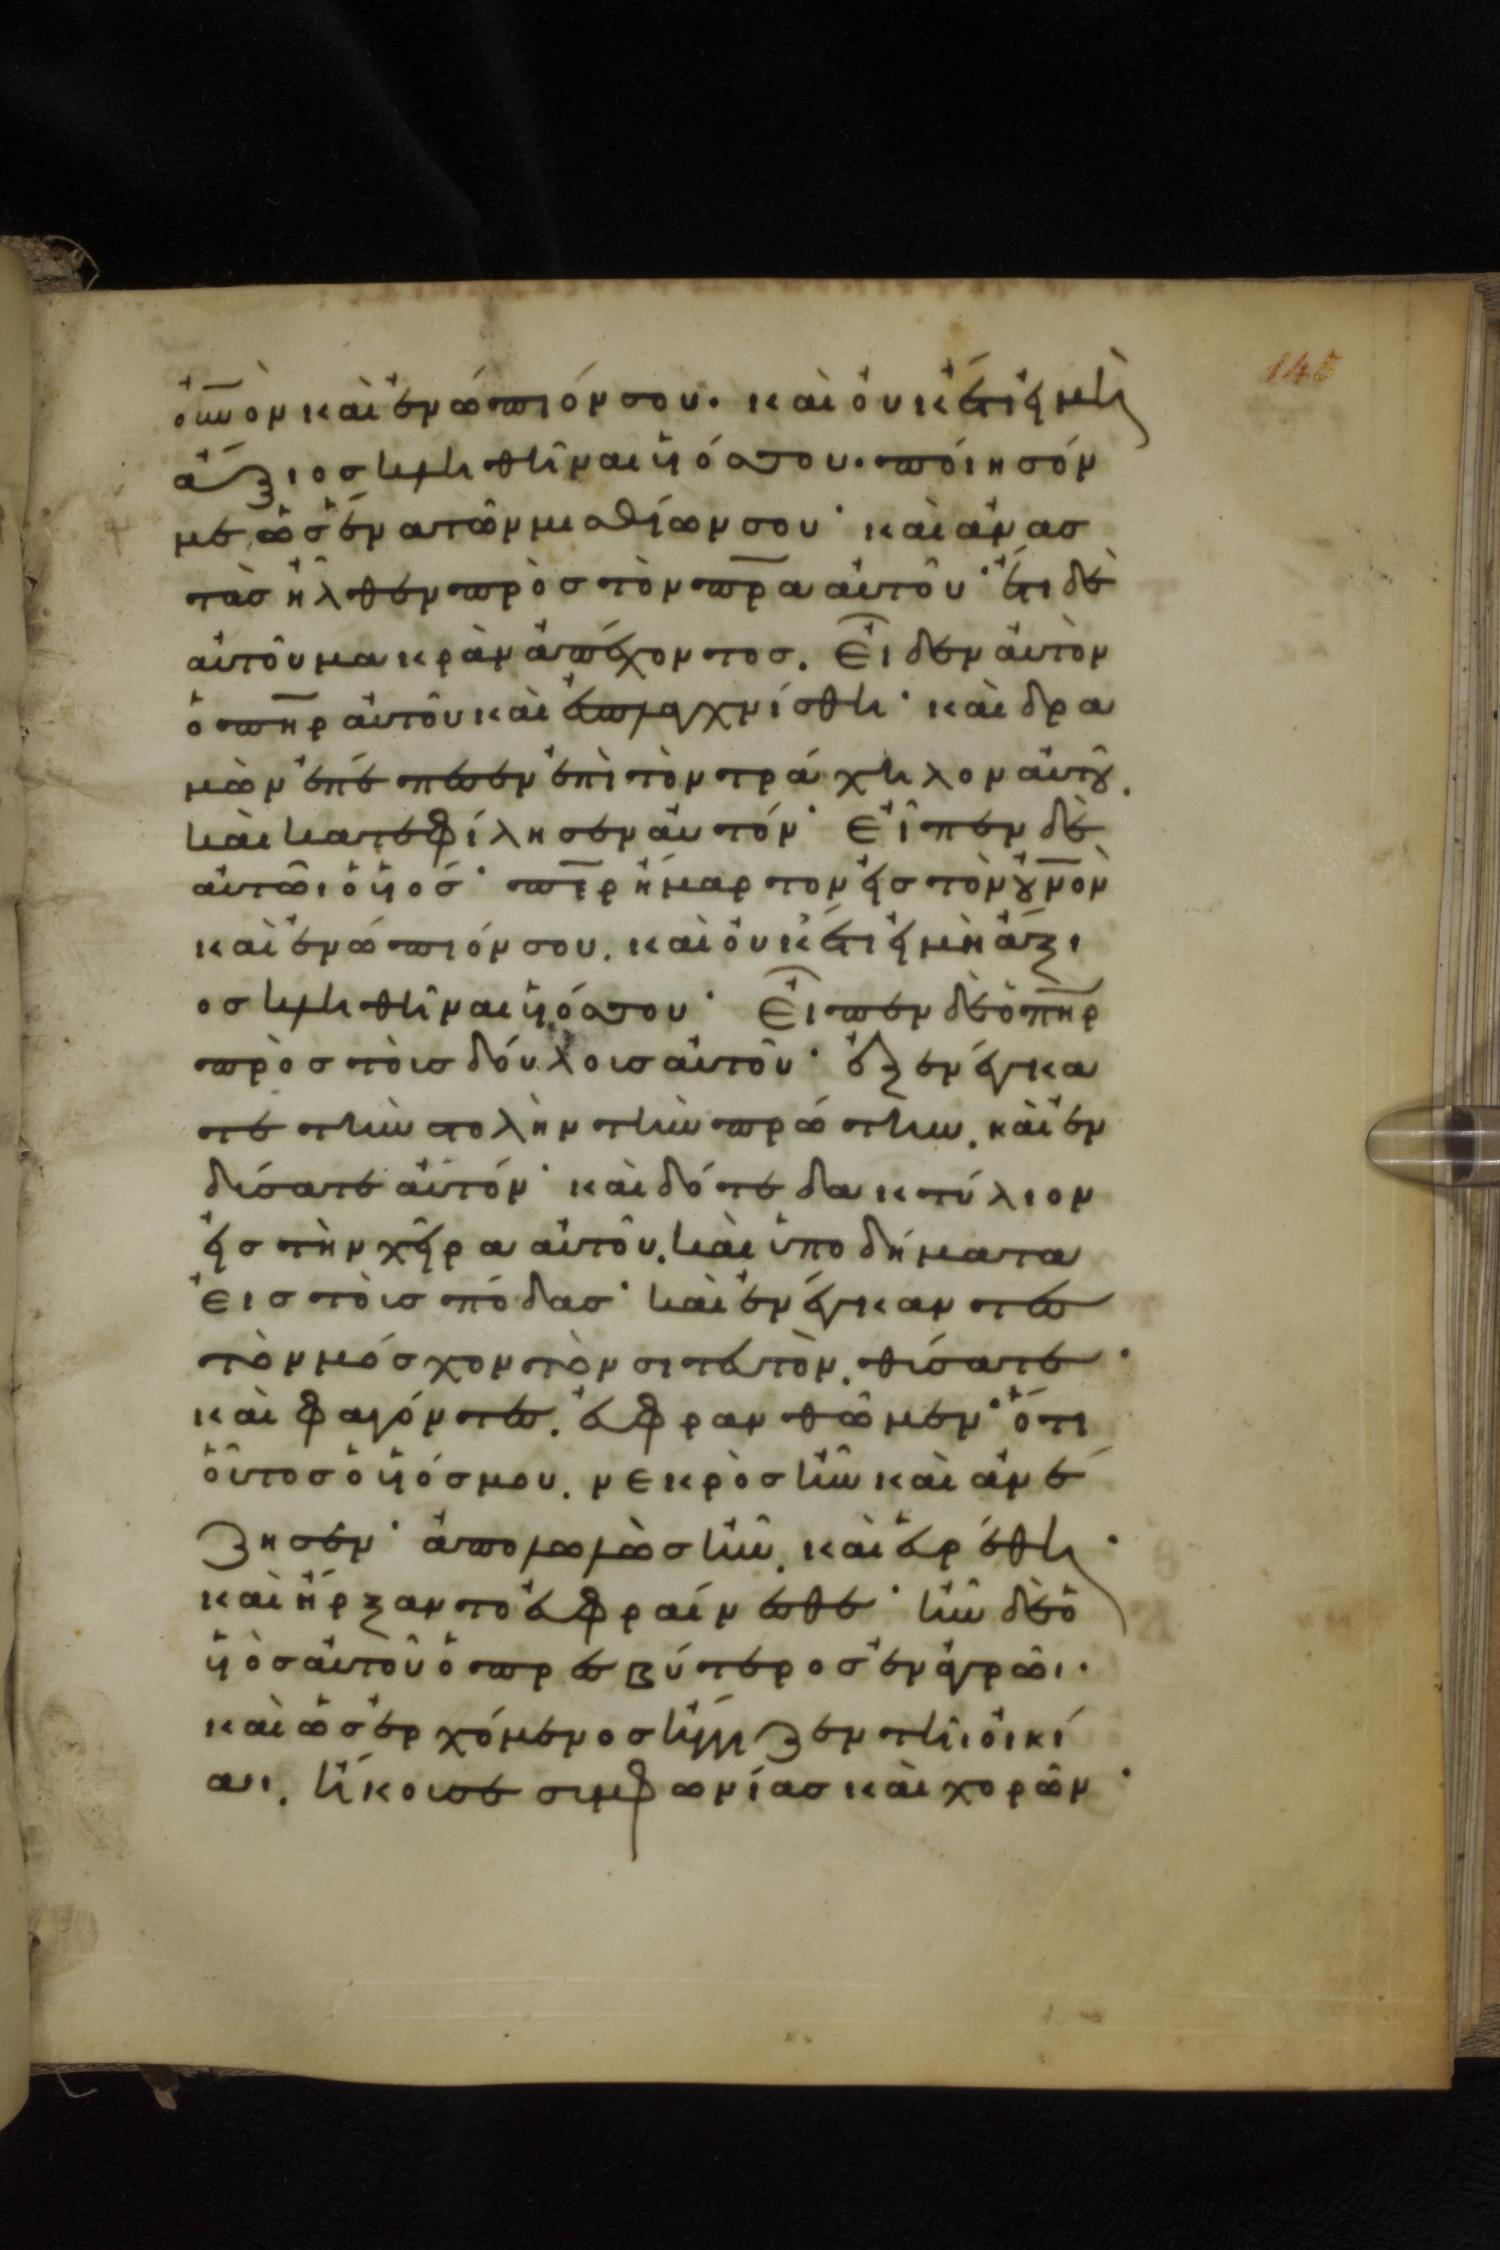 145
οὐνὸν καὶ ἐνώπιόν σου. καὶ οὐκέτι εἰμὶ
ἄξιος κληθῆναι υἱός σου. ποίησόν
με ὡς ἕνα τῶν μισθίων σου· καὶ ἀνασ
τὰς ἦλθεν πρὸς τὸν πρ̅α αὐτοῦ· ἔτι δὲ
αὐτοῦ μακρὰν ἀπέχοντος. Εἶδεν αὐτὸν
ὁ πη̅ρ αὐτοῦ καὶ εὐσπλαγχνίσθη· καὶ δρα
μὼν ἐπέπεσεν ἐπὶ τὸν τράχηλον αὐτοῦ.
καὶ κατεφίλησεν αὐτόν· Εἶπεν δὲ
αὐτῶι ὁ υἱός· πε̅ρ ἥμαρτον εἰς τὸν οὐν̅ὸν
καὶ ἐνώπιόν σου. καὶ οὐκέτι εἰμὴ ἄξι
ος κληθῆναι υἱός σου· Εἶπεν δὲ ὁ πη̅ρ
πρὸς τοὺς δούλους αὐτοῦ· ἐξενέγκα
τε τὴν στολὴν τὴν πρώτην. καὶ ἐν
δύσατε αὐτόν· καὶ δότε δακτύλιον
εἰς τὴν χεῖρα αὐτοῦ. καὶ ὑποδήματα
εἰς τοὺς πόδας· καὶ ἐνέγκαντες
τὸν μόσχον τὸν σιτευτὸν. θύσατε·
καὶ φαγόντες. εὐφρανθῶμεν· ὅτι
οὗτος ὁ υἱός μου. νεκρὸς ἦν καὶ ἀνέ
ζησεν· ἀπολωλὼς ἦν. καὶ εὑρέθη·
καὶ ἤρξαντο εὐφραίνεσθε· ἦν δὲ ὁ
υἱὸς αὐτοῦ ὁ πρεσβύτερος ἐν ἀγρῶι·
καὶ ὡς ἐρχόμενος ἤγγιζεν τῆι οἰκί
αι. ἤκουσε συμφωνίας καὶ χορῶν·